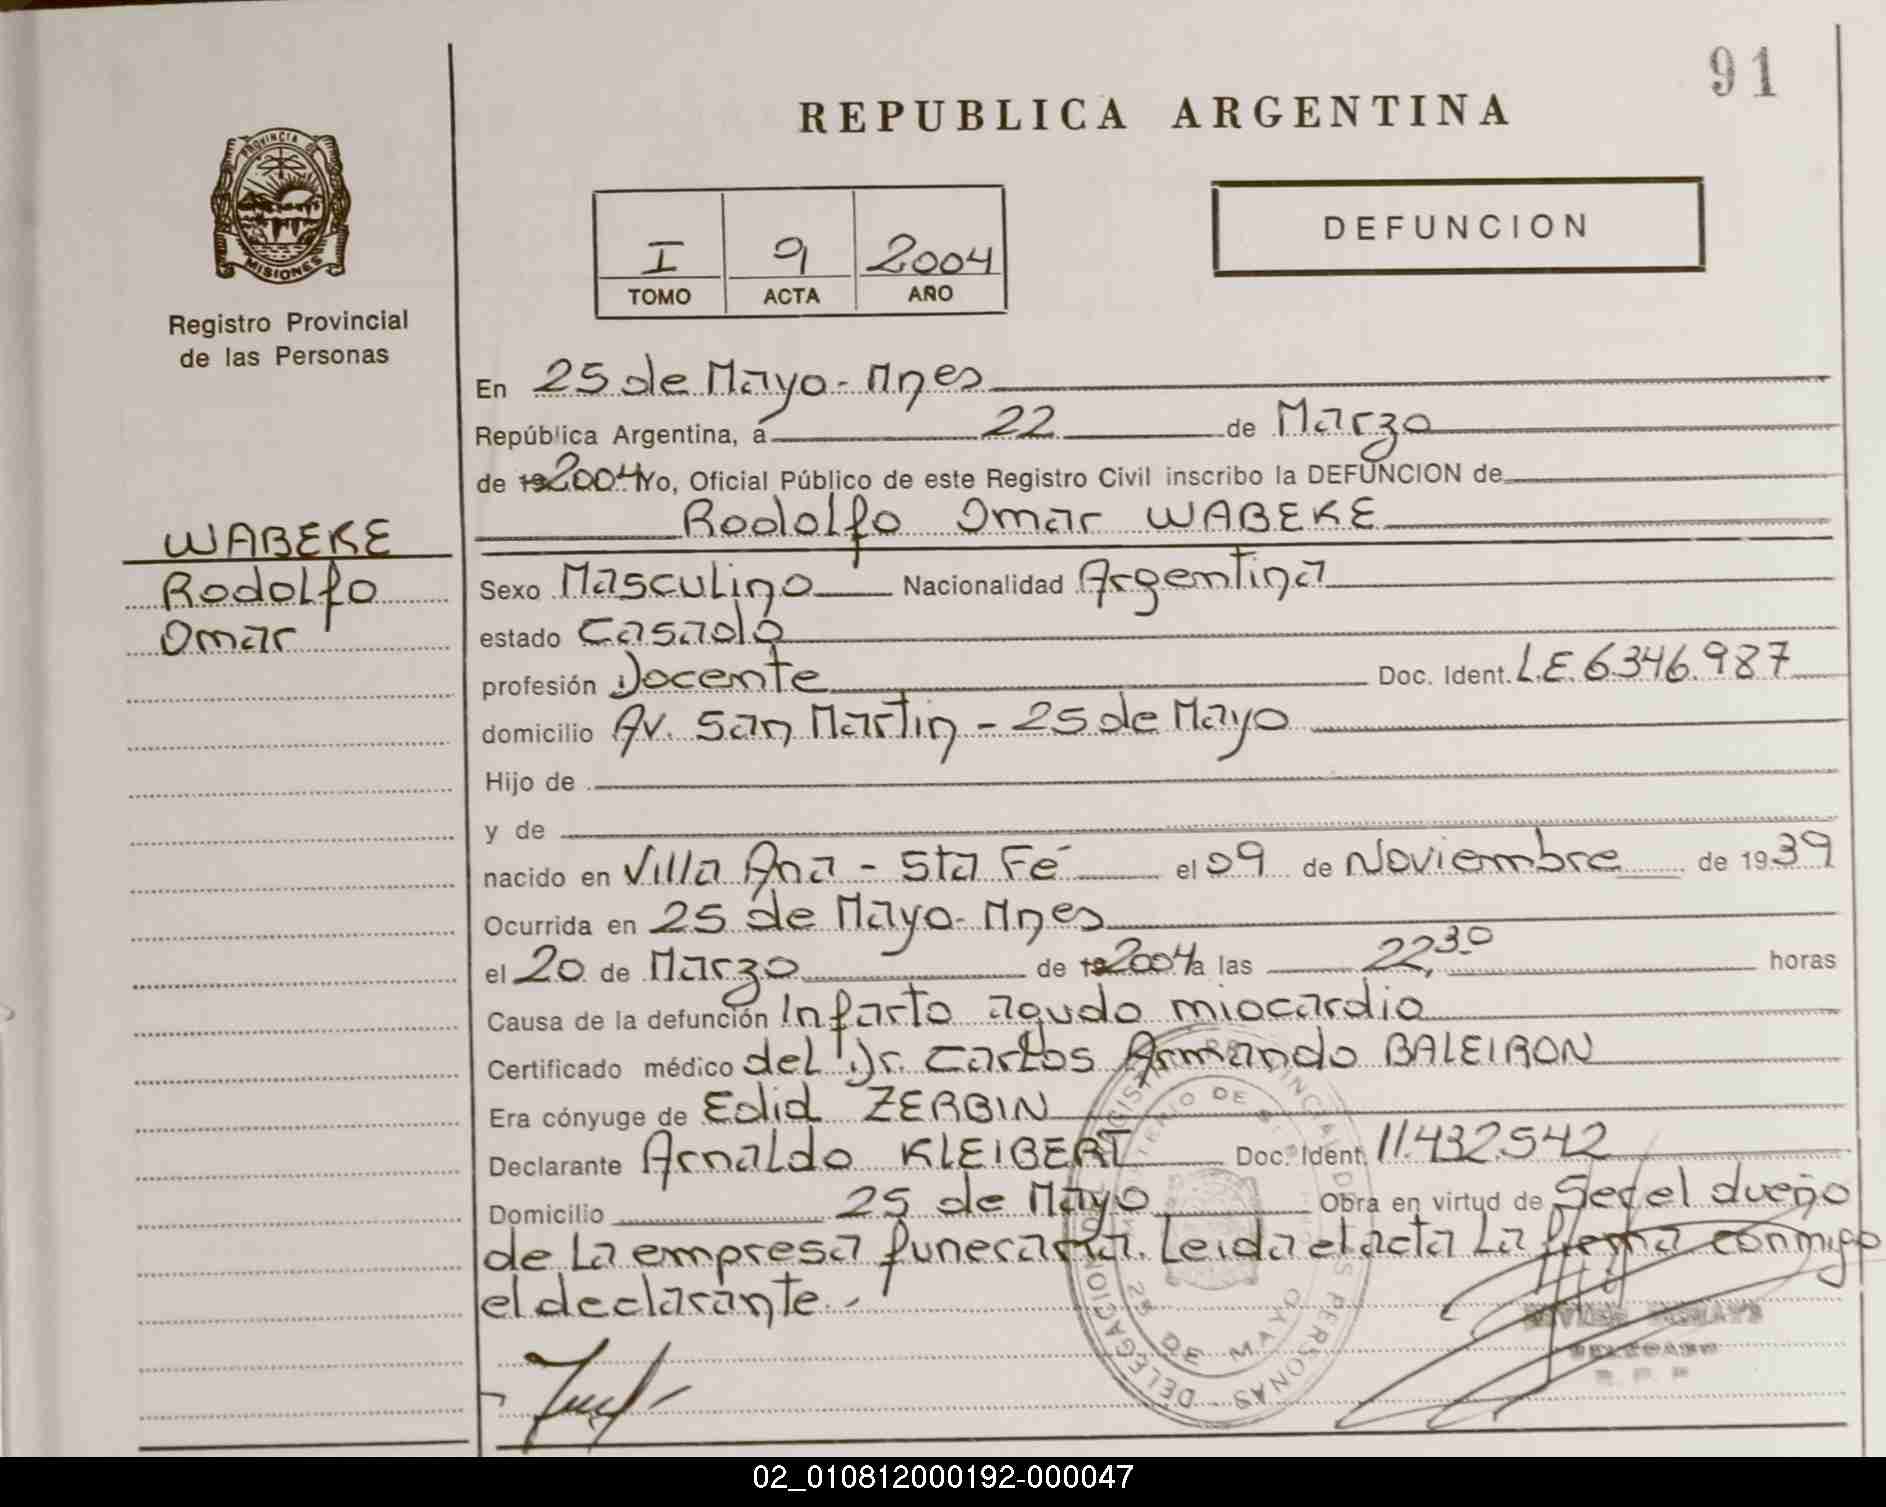 91
REPUBLICA ARGENTINA
PROVINCIA DE
MISIONES
Registro Provincial
de las Personas
I 9 2004
TOMO ACTA AÑO
DEFUNCION
WABEKE
Rodolfo
Omar
En 25 de Mayo-Mnes
República Argentina, á 22 de Marzo
de 192004 Yo, Oficial Público de este Registro Civil inscribo la DEFUNCION de
Rodolfo Omar WABEKE
Sexo Masculino Nacionalidad Argentina
estado Casado
profesión Docente Doc. Ident. L.E. 6.346.987
domicilio Av. San Martin - 25 de Mayo
Hijo de
y de
nacido en Villa Ana - Sta Fé el 09 de Noviembre de 1939
Ocurrida en 25 de Mayo-Mnes
el 20 de Marzo de 192004 a las 22,30 horas
Causa de la defunción Infarto agudo miocardio
Certificado médico del Dr. Carlos Armando BALEIRON
Era cónyuge de Edid ZERBIN
Declarante Arnaldo KLEIBERT Doc. Ident. 11.432.542
Domicilio 25 de Mayo Obra en virtud de Ser el dueño
de La empresa funeraria. Leida el acta La firma conmigo
el declarante.-
DELEGACION 25 DE MAYO
DELEGADO
R. P. P.
02_010812000192-000047